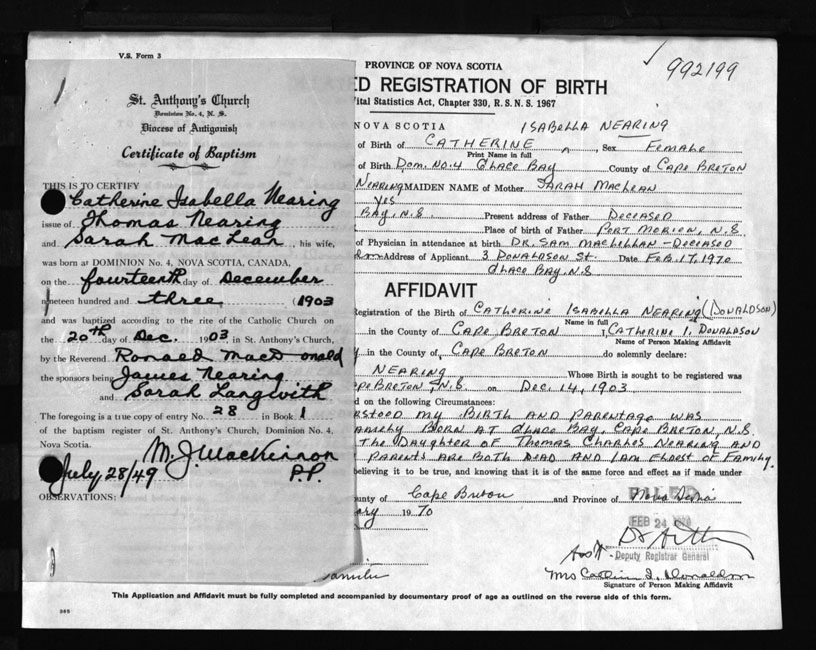 V.S. Form 3
St. Anthony's Church
Dominion No. 4, N. S.
Diocese of Antigonish
Certificate of Baptism
THIS IS TO CERTIFY
Catherine Isabella Nearing
issue of Thomas Nearing
and Sarah MacLean, his wife,
was born at DOMINION No. 4, NOVA SCOTIA, CANADA,
on the fourteenth day of December
nineteen hundred and three (1903
and was baptized according to the rite of the Catholic Church on
the 20th day of Dec. 1903, in St. Anthony's Church,
by the Reverend Ronald MacDonald
the sponsors being James Nearing
and Sarah Langwith
The foregoing is a true copy of entry No. 28 in Book 1
of the baptism register of St. Anthony's Church, Dominion No. 4,
Nova Scotia.
M.J. MacKinnon
P.P.
July 28/49
OBSERVATIONS:
992199
PROVINCE OF NOVA SCOTIA
ED REGISTRATION OF BIRTH
ital Statistics Act, Chapter 330, R. S. N. S. 1967
NOVA SCOTIA ISABELLA NEARING
of Birth of CATHERINE ^ Sex FEMALE
Print Name in full
of Birth DOM. NO.4 GLACE BAY County of CAPE BRETON
NEARING MAIDEN NAME of Mother SARAH MACLEAN
Yes
BAY, N.S. Present address of Father DECEASED
Place of birth of Father PORT MORIEN, N.S
of Physician in attendance at birth DR. SAM MACLELLAN - DECEASED
Address of Applicant 3 DONALDSON ST. Date FEB. 17, 1970
GLACE BAY, N.S
AFFIDAVIT
egistration of the Birth of CATHERINE ISABELLA NEARING (DONALDSON)
Name in full
in the County of CAPE BRETON, I, CATHERINE I. DONALDSON
Name of Person Making Affidavit
in the County of CAPE BRETON do solemnly declare:
NEARING Whose Birth is sought to be registered was
CAPE BRETON, N.S. on DEC. 14, 1903
d on the following Circumstances:
RSTOOD MY BIRTH AND PARENTAGE WAS
AMELY BORN AT GLACE BAY, CAPE BRETON, N.S.
THE DAUGHTER OF THOMAS CHARLES NEARING AND
PARENTS ARE BOTH DEAD AND I AM ELDEST OF FAMILY.
elieving it to be true, and knowing that it is of the same force and effect as if made under
unty of Cape Breton and Province of Nova Scotia
ary 1970
FILED
FEB 24 1970
Deputy Registrar General
Mrs Catherine I. Donaldson
Signature of Person Making Affidavit
This Application and Affidavit must be fully completed and accompanied by documentary proof of age as outlined on the reverse side of this form.